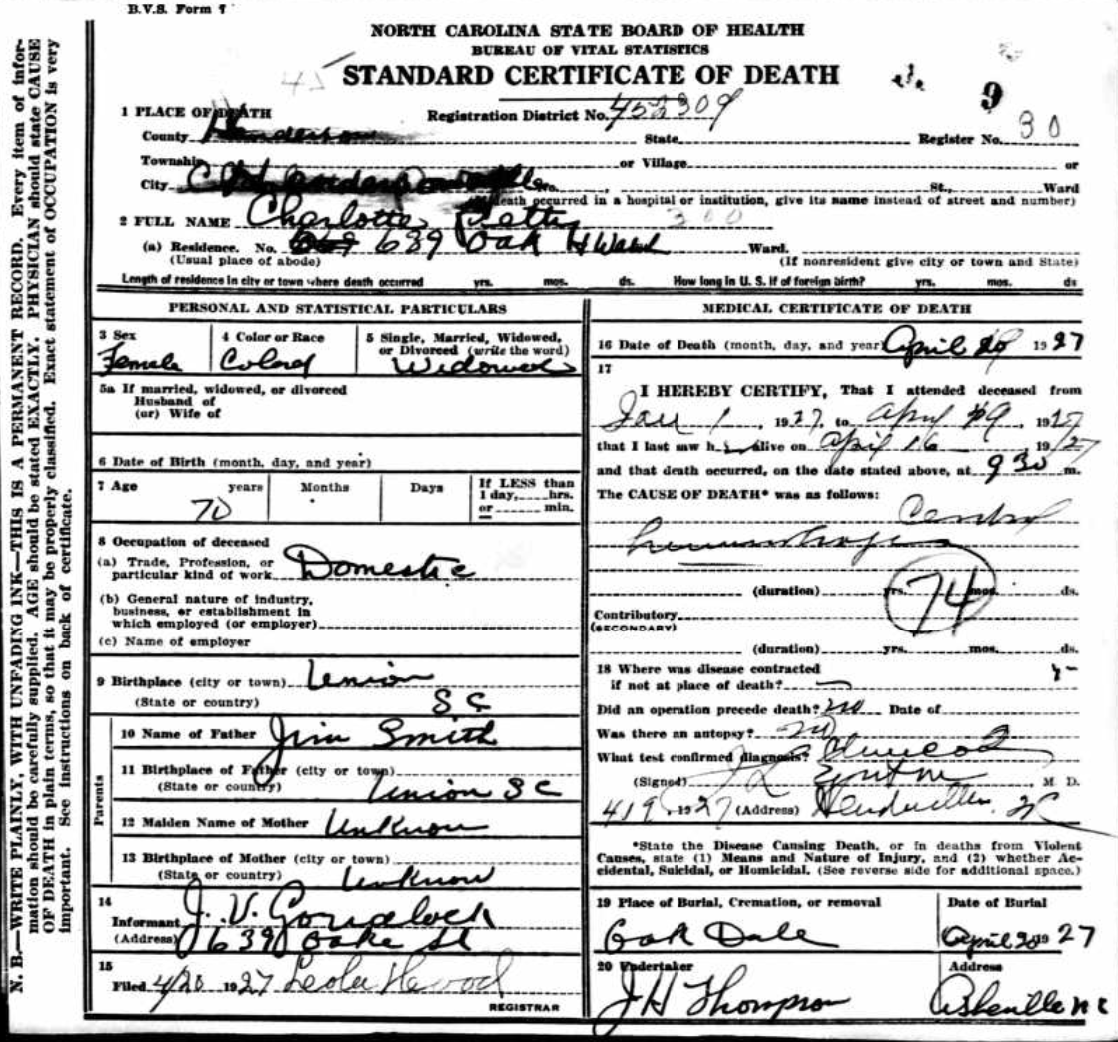 B.V.S. Form 1
NORTH CAROLINA STATE BOARD OF HEALTH
BUREAU OF VITAL STATISTICS
45 STANDARD CERTIFICATE OF DEATH
9
1 PLACE OF DEATH Registration District No. 452309
County Henderson State Register No. 30
Township or Village or
City Hendersonville No. , St., Ward
death occurred in a hospital or institution, give its name instead of street and number)
2 FULL NAME Charlotte Petty 300
(a) Residence. No. 639 Oak Ward.
(Usual place of abode) (If nonresident give city or town and State)
Length of residence in city or town where death occurred yrs. mos. ds. How long in U. S. if of foreign birth? yrs. mos. ds
PERSONAL AND STATISTICAL PARTICULARS
3 Sex 4 Color or Race 5 Single, Married, Widowed,
or Divorced (write the word)
Female Colord Widowed
5a If married, widowed, or divorced
Husband of
(or) Wife of
6 Date of Birth (month, day, and year)
7 Age years Months Days If LESS than
1 day, hrs.
or min.
70
8 Occupation of deceased
(a) Trade, Profession, or
particular kind of work Domestic
(b) General nature of industry,
business, or establishment in
which employed (or employer)
(c) Name of employer
9 Birthplace (city or town) Union
(State or country) S C
Parents
10 Name of Father Jim Smith
11 Birthplace of Father (city or town)
(State or country) Union S C
12 Maiden Name of Mother UnKnow
13 Birthplace of Mother (city or town)
(State or country) UnKnow
14
Informant J. V.
(Address) 639 Oake St
15
Filed 4/20 1927 Leola
REGISTRAR
MEDICAL CERTIFICATE OF DEATH
16 Date of Death (month, day, and year) April 1927
17
I HEREBY CERTIFY, That I attended deceased from
Jan 1, 1927, to April 19, 1927
that I last saw h alive on April 16 1927
and that death occurred, on the date stated above, at 9 30 m.
The CAUSE OF DEATH* was as follows:
74
(duration) yrs. mos. ds.
Contributory
(SECONDARY)
(duration) yrs. mos. ds.
18 Where was disease contracted
if not at place of death?
Did an operation precede death? no Date of
Was there an autopsy? no
What test confirmed diagnosis?
(Signed) , M. D.
4/9, 1927 (Address)
*State the Disease Causing Death, or in deaths from Violent
Causes, state (1) Means and Nature of Injury, and (2) whether Ac-
cidental, Suicidal, or Homicidal. (See reverse side for additional space.)
19 Place of Burial, Cremation, or removal Date of Burial
Oak Dale April 20 1927
20 Undertaker Address
J H Thompson Asheville N C
N. B.—WRITE PLAINLY, WITH UNFADING INK—THIS IS A PERMANENT RECORD. Every item of infor-
mation should be carefully supplied. AGE should be stated EXACTLY. PHYSICIAN should state CAUSE
OF DEATH in plain terms, so that it may be properly classified. Exact statement of OCCUPATION is very
important. See instructions on back of certificate.